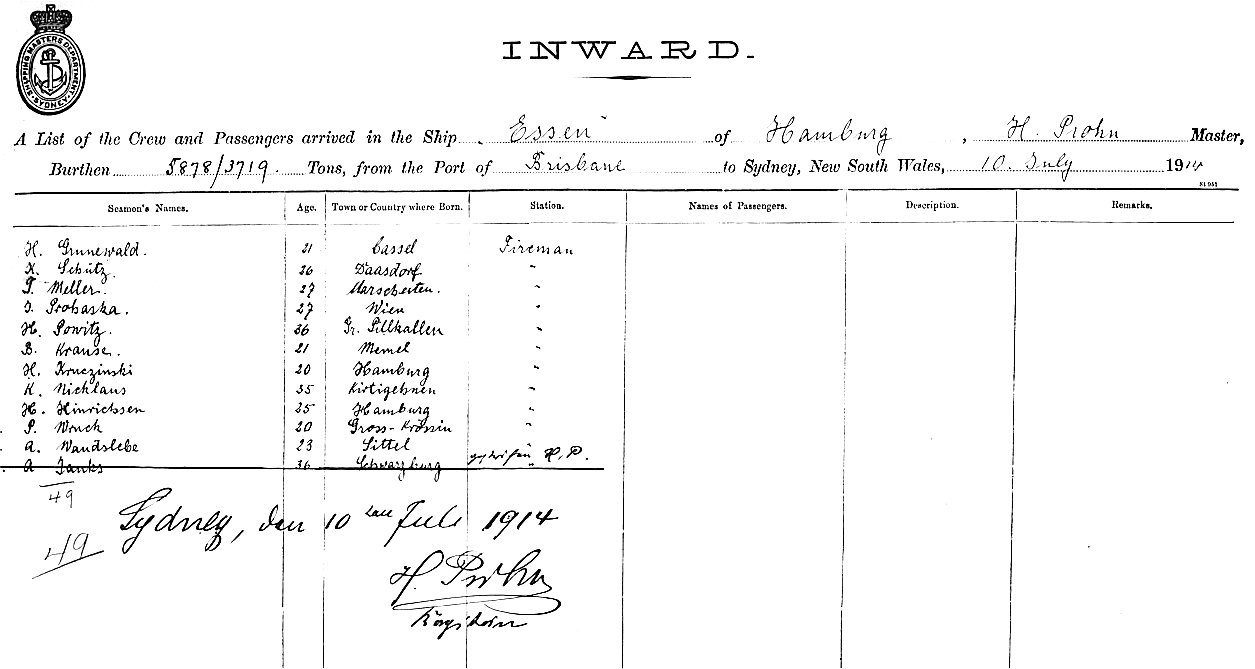 SHIPPING MASTERS DEPARTMENT SYDNEY
INWARD.
A List of the Crew and Passengers arrived in the Ship Essen of Hamburg, H. Prohn Master,
Burthen 5878/3719. Tons, from the Port of Brisbane to Sydney, New South Wales, 10. July 1914
Seamen's Names. Age. Town or Country where Born. Station. Names of Passengers. Description. Remarks.
H. Grunewald. 21 Cassel Fireman
K. Schütz. 26 Daasdorf "
Meller. 27 "
Prohaska. 27 Wien "
H. Powitz. 36 Gr. Pillkallen "
B. Krause. 21 Memel "
H. Kruczinski 20 Hamburg "
K. Nicklaus 35 Kirtigehnen "
H. Hinrichsen 25 Hamburg "
P. Wruck 20 Gross-Krössin "
A. Wandslebe 23 Sittel "
A Janks 36 Schwarzburg H. P.
49
Sydney, den 10 ten Juli 1914
49
H. Prohn